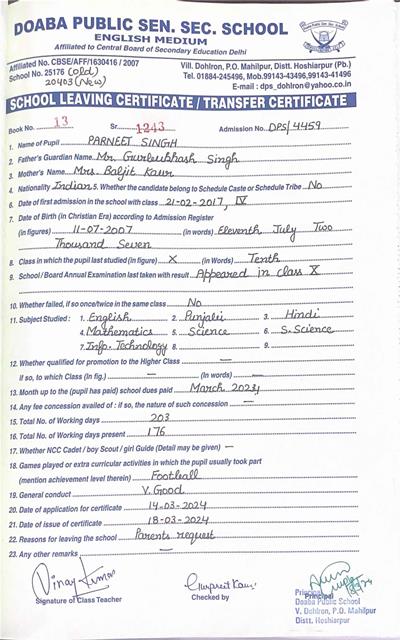 DOABA PUBLIC SEN. SEC. SCHOOL
ENGLISH MEDIUM
Affiliated to Central Board of Secondary Education Delhi
Affiliated No. CBSE/AFF/1630416 / 2007
School No. 25176 (old)
20403 (New)
Vill. Dohlron, P.O. Mahilpur, Distt. Hoshiarpur (Pb.)
Tel. 01884-245496, Mob.99143-43496,99143-41496
E-mail : dps_dohlron@yahoo.co.in
SCHOOL LEAVING CERTIFICATE / TRANSFER CERTIFICATE
Book No. 13 Sr. 1243 Admission No. DPS/4459
1. Name of Pupil PARNEET SINGH
2. Father's Guardian Name Mr. Gurbukhash Singh
3. Mother's Name Mrs. Baljit Kaur
4. Nationality Indian 5. Whether the candidate belong to Schedule Caste or Schedule Tribe No
6. Date of first admission in the school with class 21-02-2017, IV
7. Date of Birth (in Christian Era) according to Admission Register
(in figures) 11-07-2007 (in words) Eleventh July Two
Thousand Seven
8. Class in which the pupil last studied (in figure) X (in Words) Tenth
9. School / Board Annual Examination last taken with result Appeared in class X
10. Whether failed, if so once/twice in the same class No
11. Subject Studied : 1. English 2. Punjabi 3. Hindi
4. Mathematics 5. Science 6. S. Science
7. Info. Technology 8. 9.
12. Whether qualified for promotion to the Higher Class —
if so, to which Class (In fig.) — (In words) —
13. Month up to the (pupil has paid) school dues paid March 2023,
14. Any fee concession availed of : if so, the nature of such concession —
15. Total No. of Working days 203
16. Total No. of Working days present 176
17. Whether NCC Cadet / boy Scout / girl Guide (Detail may be given) —
18. Games played or extra curricular activities in which the pupil usually took part
(mention achievement level therein) Football
19. General conduct V. Good
20. Date of application for certificate 14-03-2024
21. Date of issue of certificate 18-03-2024
22. Reasons for leaving the school Parents request
23. Any other remarks —
Vinay Kumar
Signature of Class Teacher
Gurpreet Kaur
Checked by
Principal
Principal
Doaba Public School
V. Dohlron, P.O. Mahilpur
Distt. Hoshiarpur